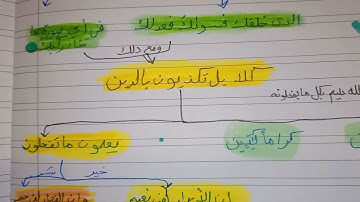 الذى خلقك فسواك فعدلك
فى أى صورة ما شاء ركبك
ومع ذلك
كلا بل تكذبون بالدين
الله عليم بكل ما يفعلونه
كراماً كتبين
يعلمون ما تفعلون
خير
شر
إن الأبرار لفى نعيم